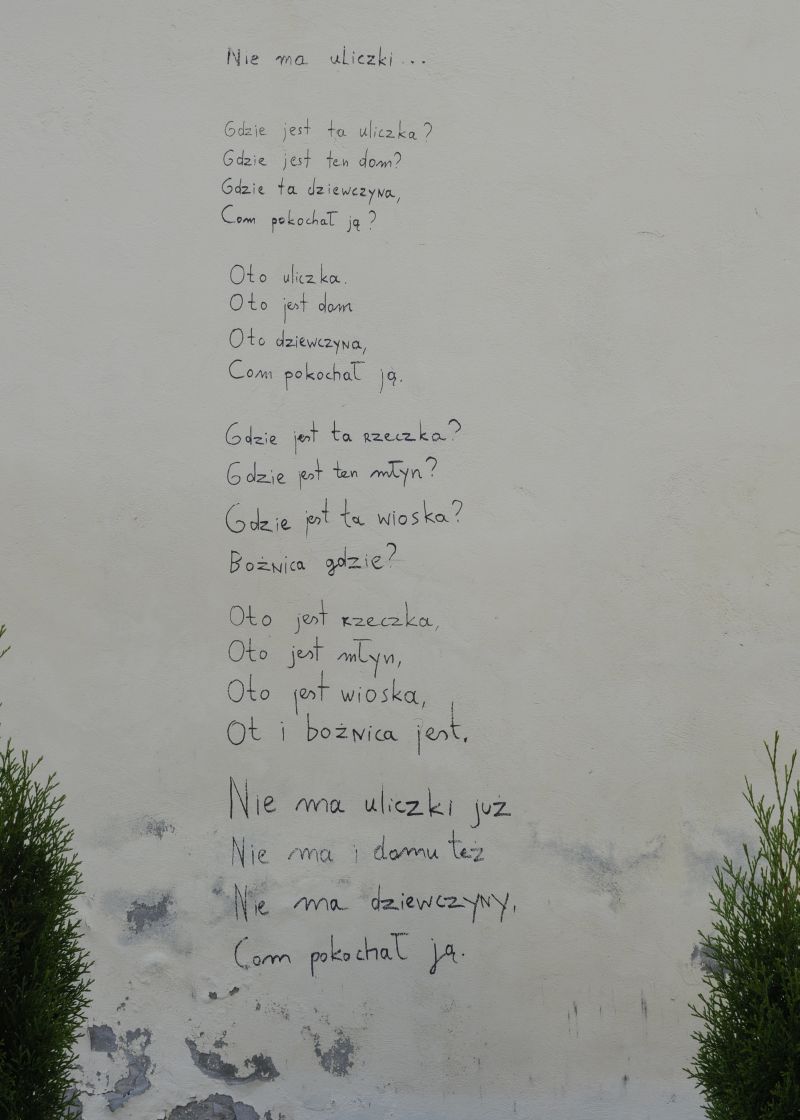 Nie ma uliczki...
Gdzie jest ta uliczka?
Gdzie jest ten dom?
Gdzie ta dziewczyna,
Com pokochał ją?
Oto uliczka.
Oto jest dom
Oto dziewczyna,
Com pokochał ją.
Gdzie jest ta rzeczka?
Gdzie jest ten młyn?
Gdzie jest ta wioska?
Bożnica gdzie?
Oto jest rzeczka,
Oto jest młyn,
Oto jest wioska,
Ot i bożnica jest.
Nie ma uliczki już
Nie ma i domu też
Nie ma dziewczyny,
Com pokochał ją.